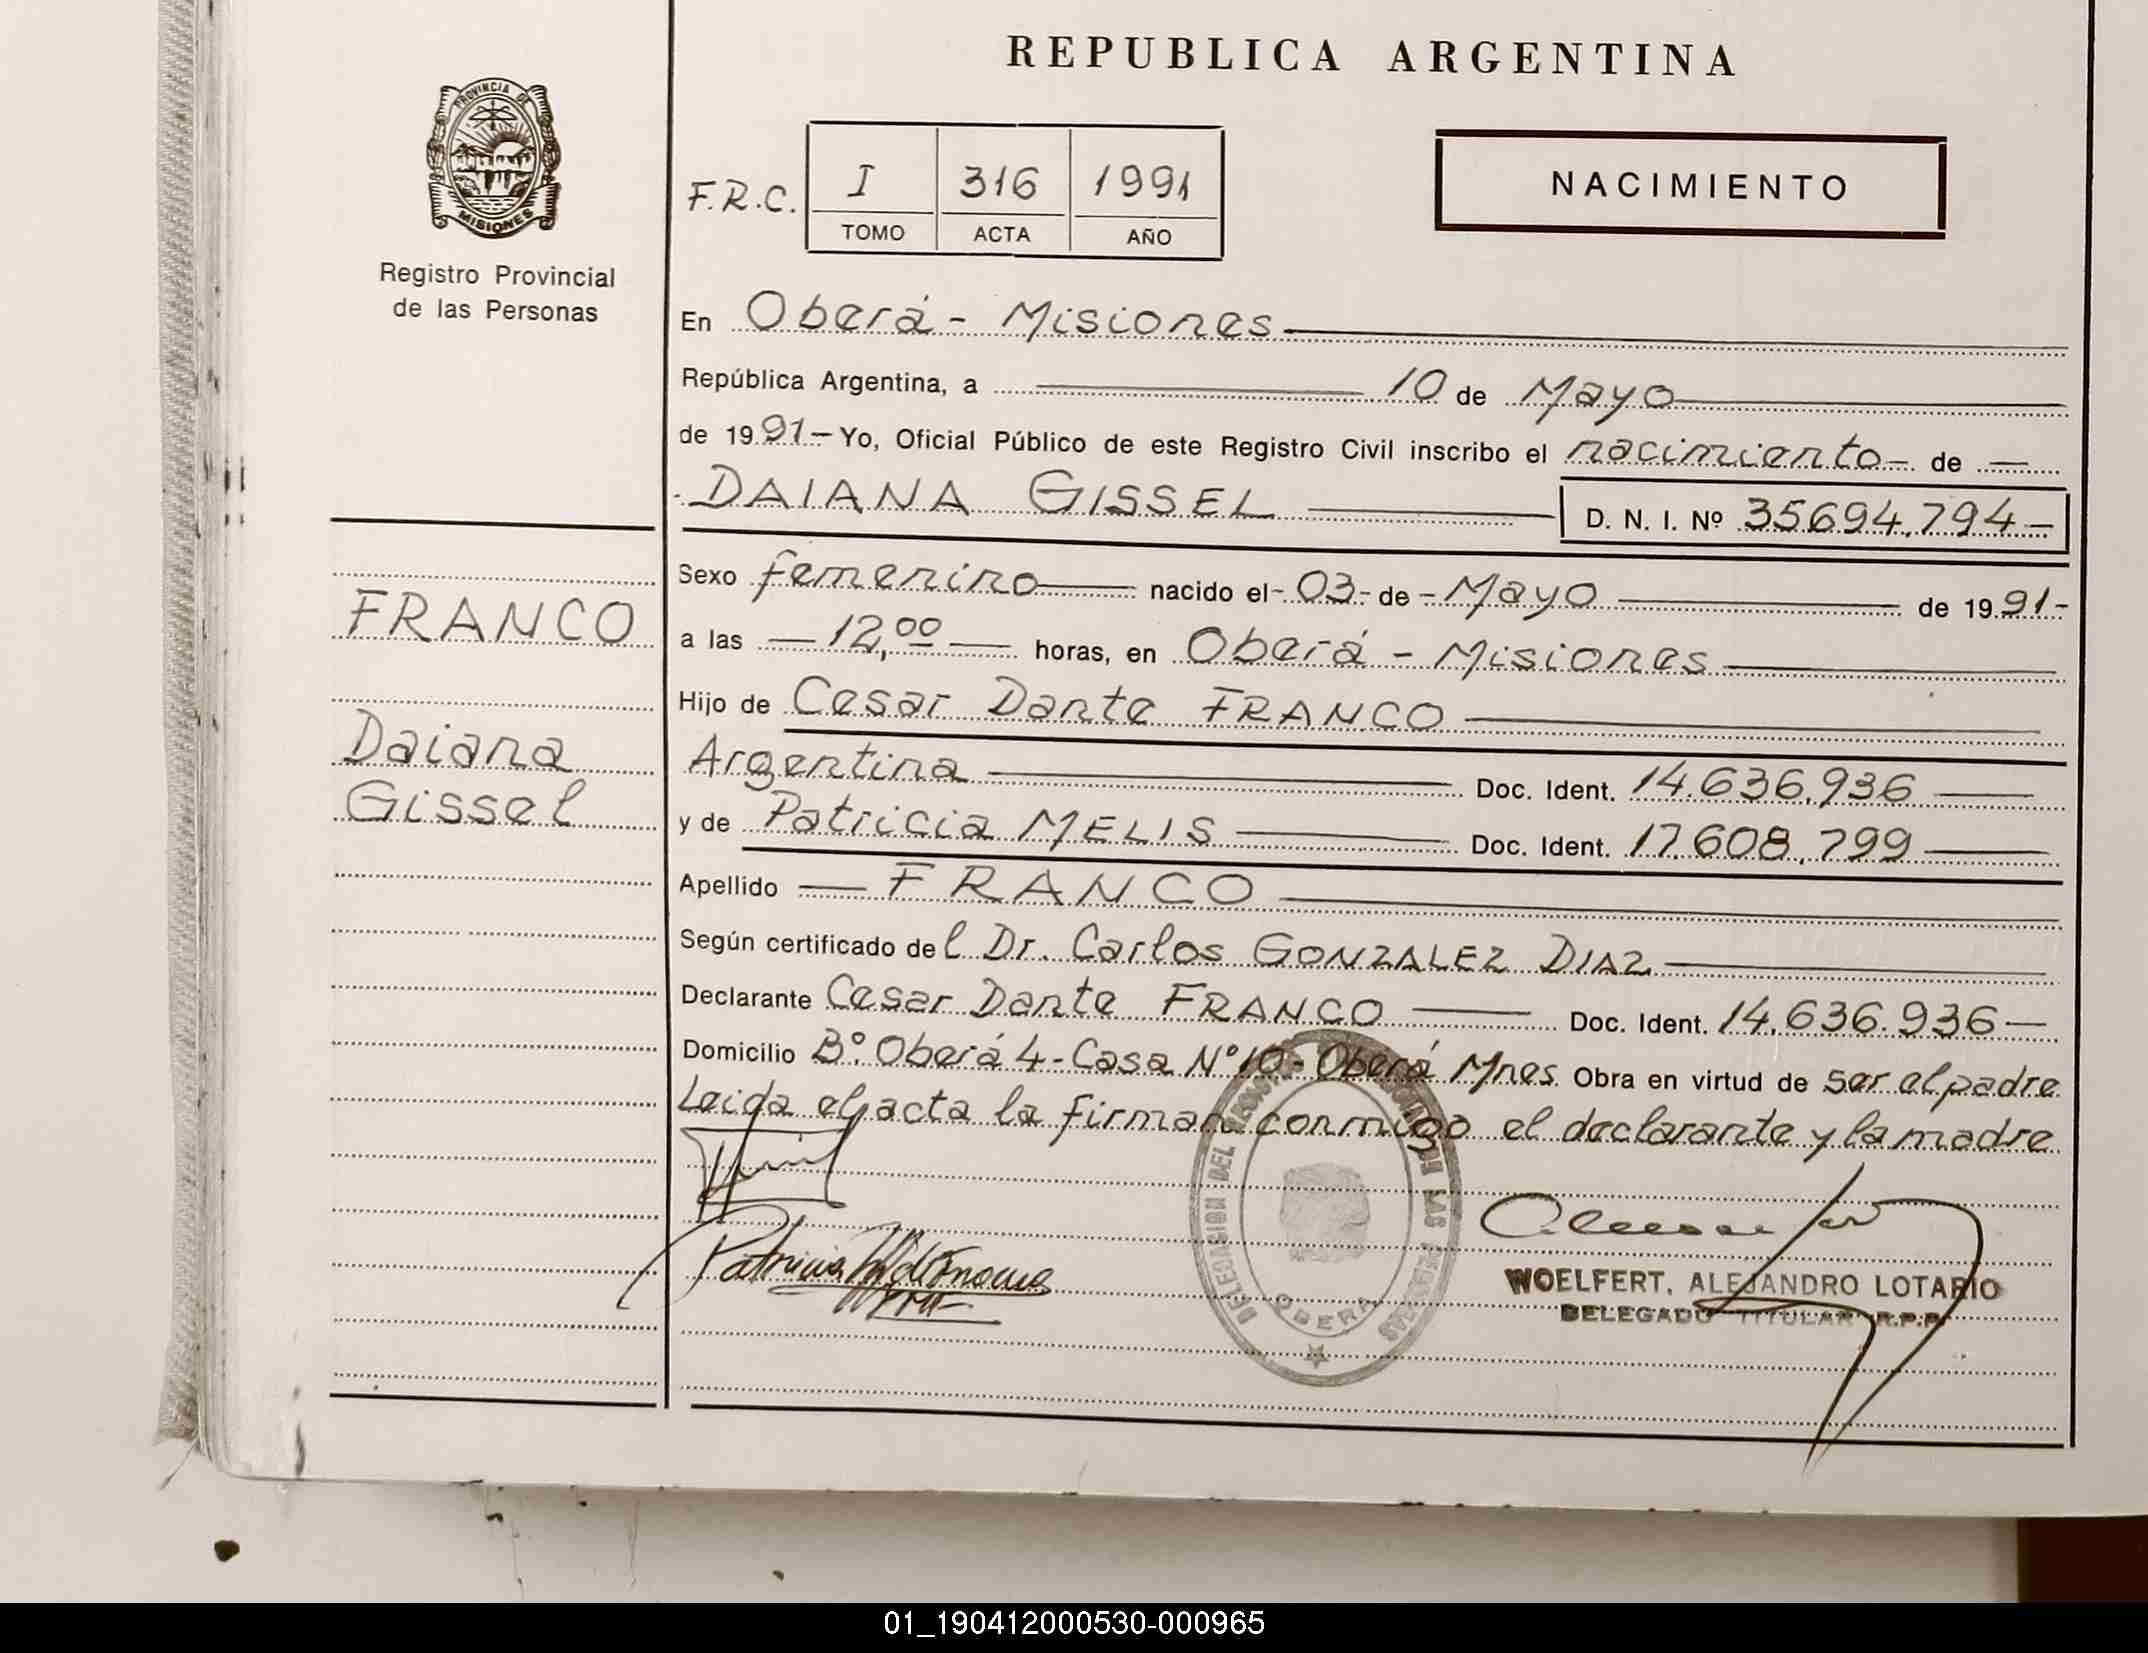 REPUBLICA ARGENTINA
PROVINCIA DE
MISIONES
Registro Provincial
de las Personas
F.R.C. I 316 1991
TOMO ACTA AÑO
NACIMIENTO
En Oberá - Misiones
República Argentina, a 10 de Mayo
de 1991 - Yo, Oficial Público de este Registro Civil inscribo el nacimiento - de -
DAIANA GISSEL D. N. I. Nº 35694.794 -
Sexo femenino nacido el - 03 - de - Mayo de 1991 -
a las - 12,00 - horas, en Oberá - Misiones
Hijo de Cesar Dante FRANCO
Argentina Doc. Ident. 14.636.936
y de Patricia MELIS Doc. Ident. 17.608.799
Apellido FRANCO
Según certificado del Dr. Carlos GONZALEZ DIAZ
Declarante Cesar Dante FRANCO Doc. Ident. 14.636.936 -
Domicilio Bº. Oberá 4 - Casa Nº 10 - Oberá Mnes. Obra en virtud de ser el padre
Leida el acta la firman conmigo el declarante y la madre
FRANCO
Daiana
Gissel
Patricia
DELEGACION DEL REGISTRO PROVINCIAL DE LAS PERSONAS
OBERA
WOELFERT, ALEJANDRO LOTARIO
DELEGADO TITULAR R.P.P.
01_190412000530-000965